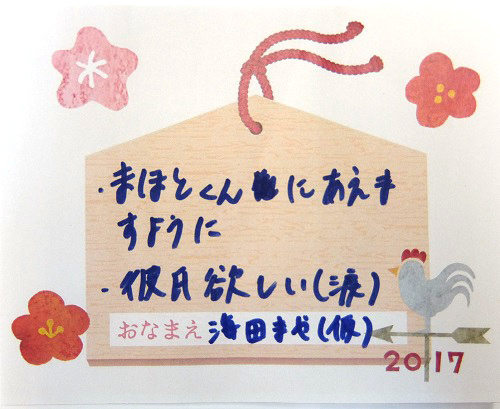 ・まほとくんにあえま
すように
・彼氏欲しい(涙)
おなまえ 海田まや(仮)
2017